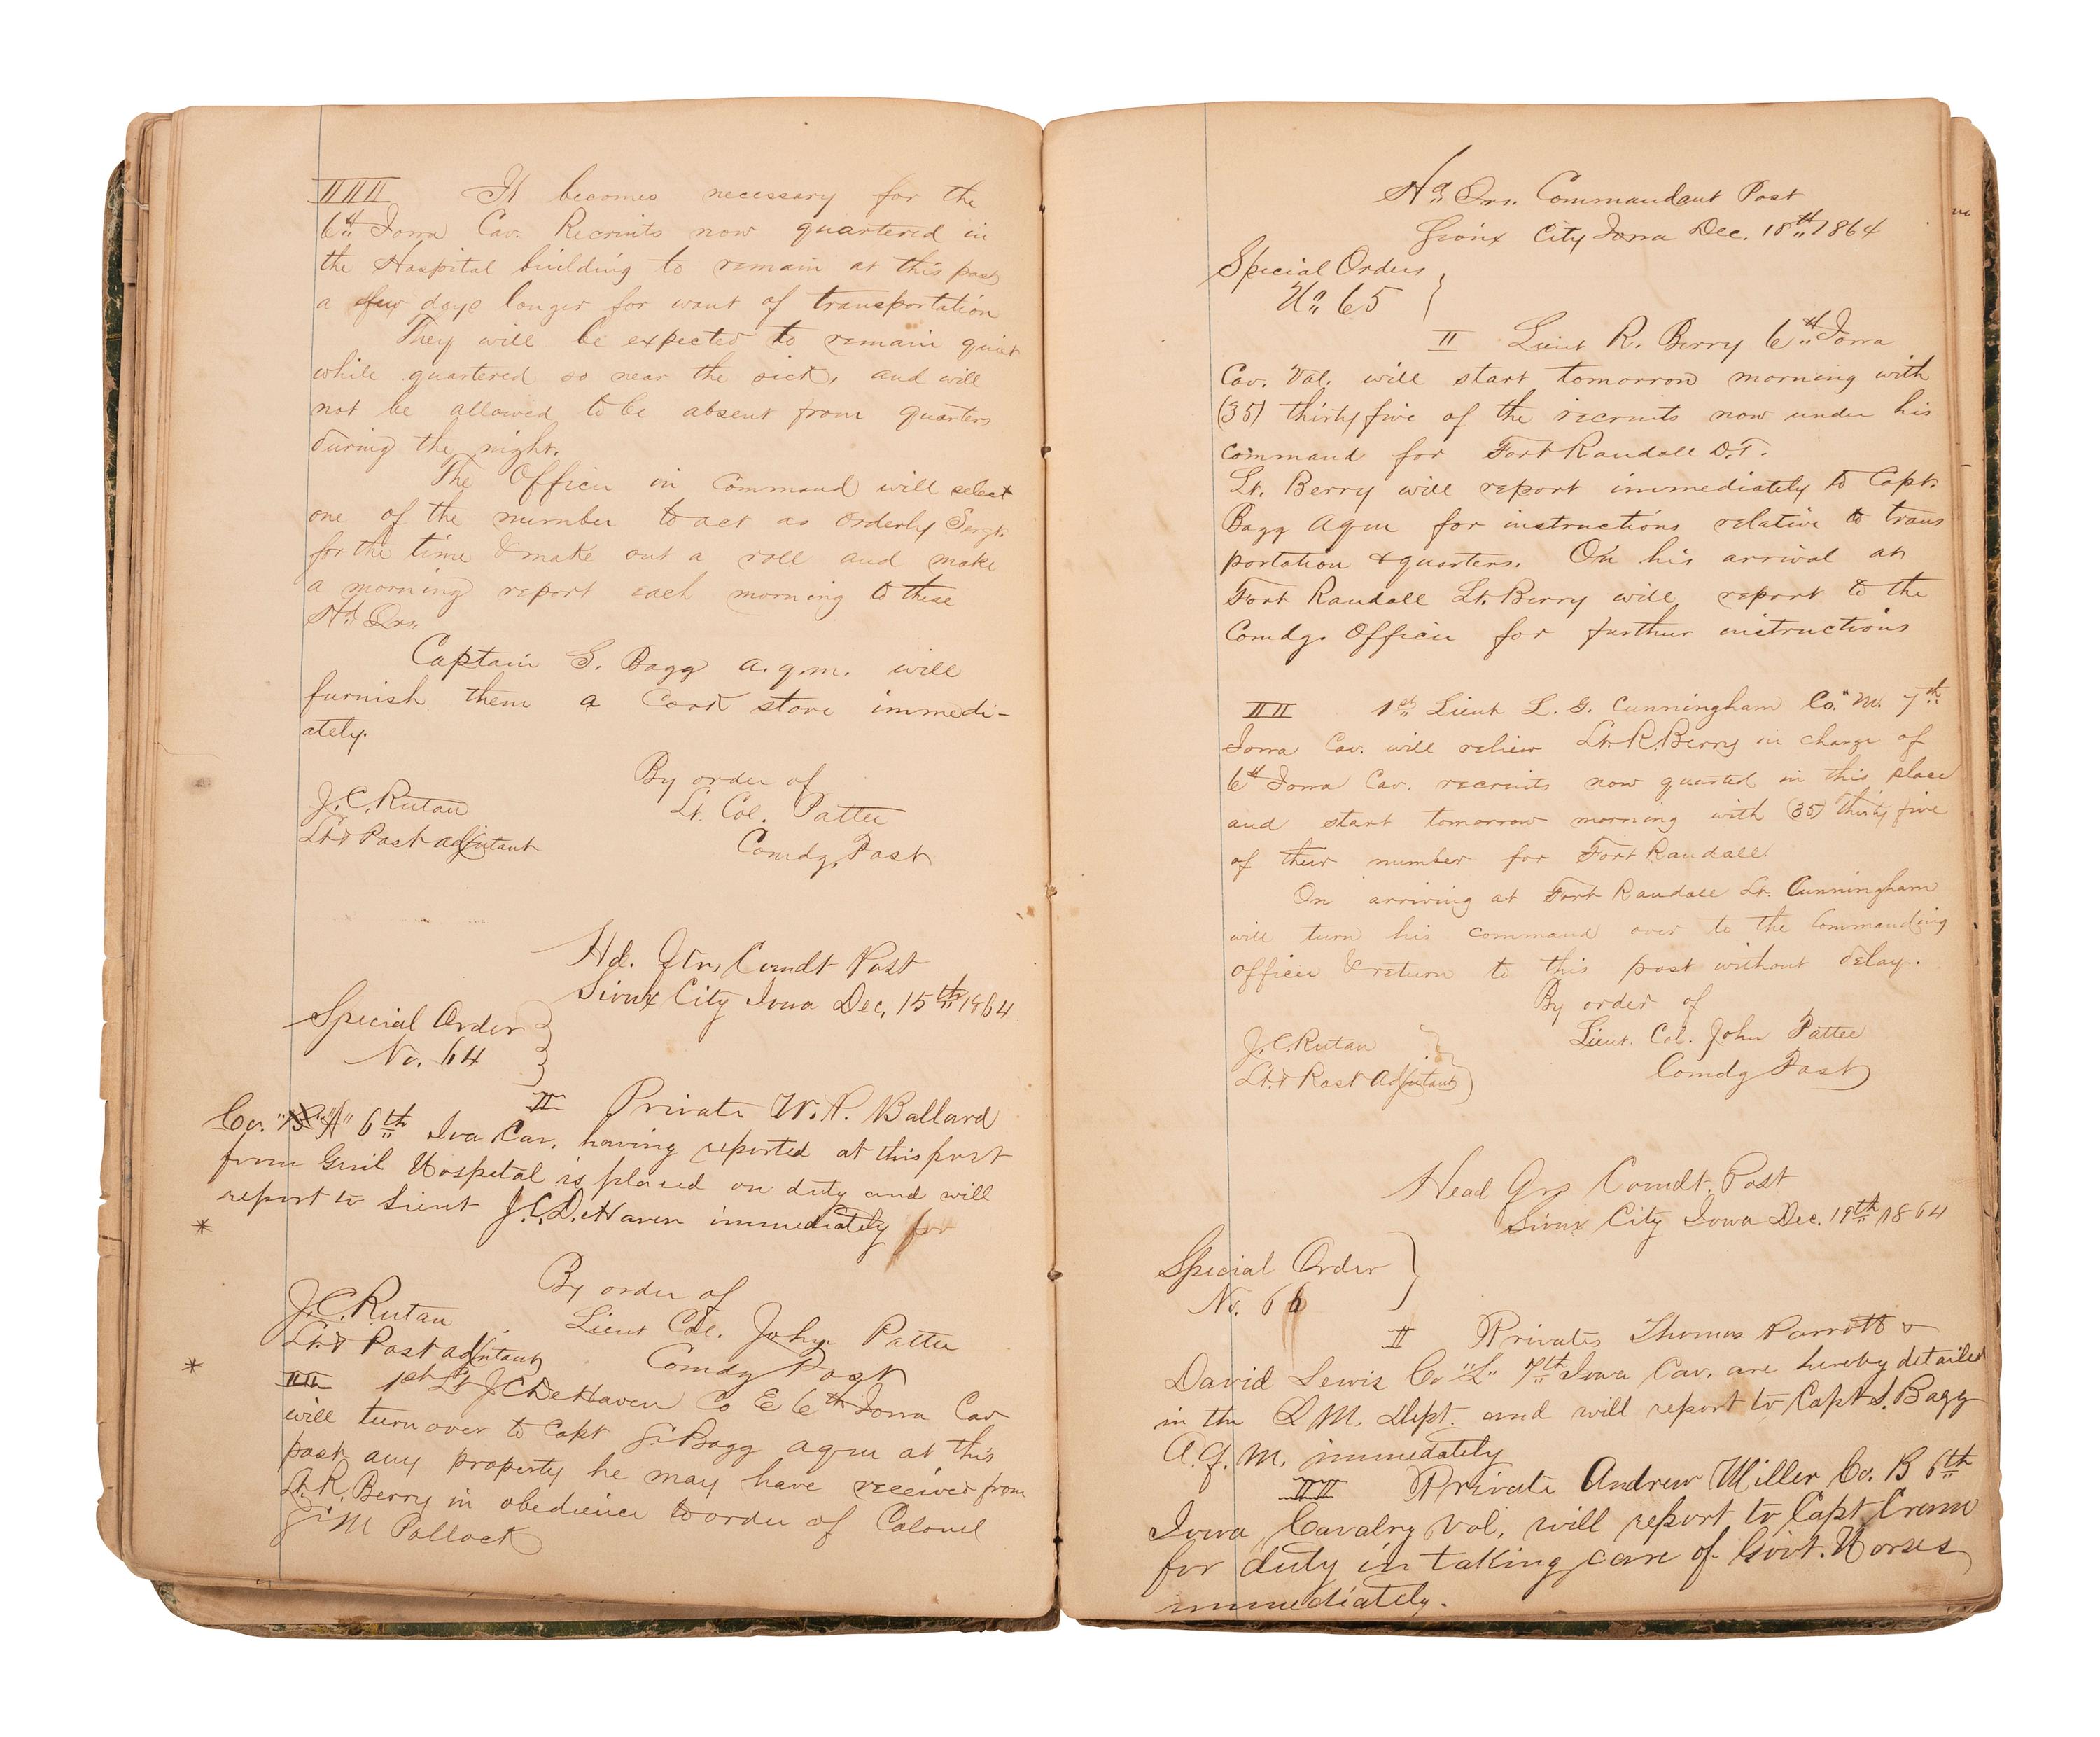 III It becomes necessary for the
6th Iowa Cav. Recruits now quartered in
the Hospital building to remain at this post
a few days longer for want of transportation
They will be expected to remain quiet
while quartered so near the sick, and will
not be allowed to be absent from quarters
during the night.
The Officer in Command will select
one of the number to act as Orderly Sergt.
for the time & make out a roll and make
a morning report each morning to these
Hd Qrs.
Captain S. Bagg a.q.m. will
furnish them a Cook stove immedi-
ately.
By order of
J. C. Rutan Lt. Col. Pattee
Lt. & Post Adjutant Comdg. Post
Hd. Qtrs Comdt Post
Sioux City Iowa Dec. 15th 1864
Special Order
No. 64
II Private W. A. Ballard
Co. "A" 6th Ioa Cav. having reported at this post
from Genl Hospetal is placed on duty and will
report to Lieut J. C. DeHaven immediately for
*
By order of
J. C. Rutan Lieut Col. John Pattee
Lt. & Post Adjutant Comdg Post
*
II II 1st Lt J C DeHaven Co E 6th Iowa Cav
will turn over to Capt S. Bagg aqm at this
post any property he may have received from
Lt. R. Berry in obedience to order of Colonel
S. M Pollock
Hd Qrs. Commandant Post
Sioux City Iowa Dec. 18th 1864
Special Orders
No 65
II Lieut R. Berry 6th Iowa
Cav. Vol. will start tomorrow morning with
(35) thirty five of the recruits now under his
command for Fort Randall D.T.
Lt. Berry will report immediately to Capt.
Bagg Aqm for instructions relative to trans
portation & quarters. On his arrival at
Fort Randall Lt. Berry will report to the
Comdg. Officer for further instructions
II II 1st Lieut L. G. Cunningham Co. "M. 7th
Iowa Cav. will relieve Lt. R. Berry in charge of
6th Iowa Cav. recruits now quarted in this place
and start tomorrow morning with (35) thirty five
of their number for Fort Randall
On arriving at Fort Randall Lt. Cunningham
will turn his command over to the Commanding
officer & return to this post without delay.
By order of
J. C. Rutan Lieut. Col. John Pattee
Lt. & Post Adjutant Comdg Post
Head Qrs Comdt. Post
Sioux City Iowa Dec. 19th 1864
Special Order
No. 66
II Privates Thomas Parrott &
David Lewis Co "L" 7th Iowa Cav. are hereby detailed
in the Q M. Dept. and will report to Capt S. Bagg
A. Q. M. immedately
II II Private Andrew Miller Co. B 6th
Iowa Cavalry Vol. will report to Capt Cram
for duty in taking care of Govt. Horses
immediately.